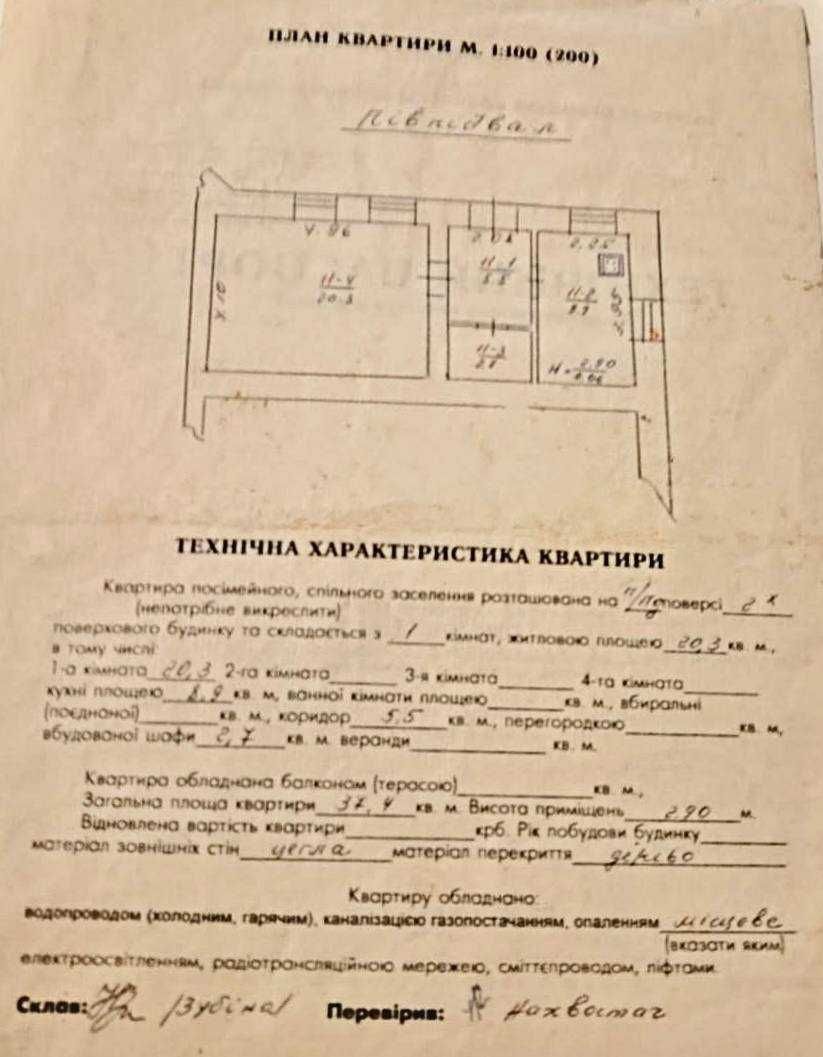 ПЛАН КВАРТИРИ М. 1:100 (200)
півпідвал
4.96
2.25
11-4
20.3
11-1
5.5
11-2
8.9
11-3
2.7
H = 2.90
ТЕХНІЧНА ХАРАКТЕРИСТИКА КВАРТИРИ
Квартира посімейного, спільного заселення розташована на п/пд поверсі 2х
(непотрібне викреслити)
поверхового будинку та складається з 1 кімнат, житловою площею 20,3 кв. м.,
в тому числі
1-а кімната 20,3 2-га кімната 3-я кімната 4-та кімната
кухні площею 8,9 кв. м, ванної кімнати площею кв. м., вбиральні
(поєднаної) кв. м., коридор 5,5 кв. м., перегородкою кв. м,
вбудованої шафи 2,7 кв. м. веранди кв. м.
Квартира обладнана балконом (терасою) кв. м.,
Загальна площа квартири 37,4 кв. м. Висота приміщень 290 м.
Відновлена вартість квартири крб. Рік побудови будинку
матеріал зовнішніх стін цегла матеріал перекриття дерево
Квартиру обладнано:
водопроводом (холодним, гарячим), каналізацією газопостачанням, опаленням місцеве
(вказати яким)
електроосвітленням, радіотрансляційною мережею, сміттєпроводом, ліфтами.
Склав: /Зубіна/ Перевірив: